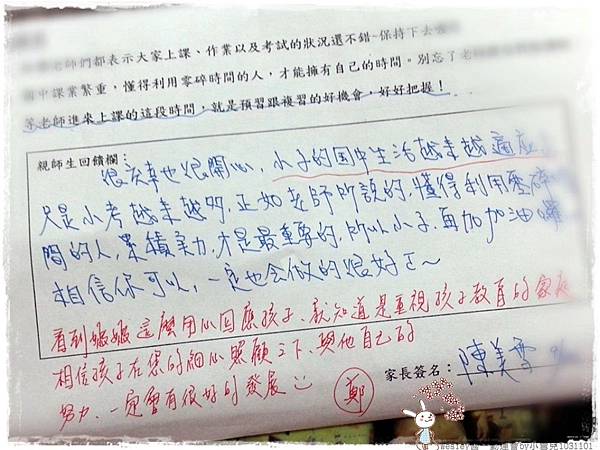 老師們都表示大家上課、作業以及考試的狀況還不錯~保持下去
中課業繁重,懂得利用零碎時間的人,才能擁有自己的時間。別忘了
等老師進來上課的這段時間,就是預習跟複習的好機會,好好把握!
親師生回饋欄:
很榮幸也很開心,小子的国中生活越來越適應,
只是小考越來越多,正如老師所說的,懂得利用零碎
間的人,累積實力,才是最重要的,所以小子,再加加油囉
相信你可以,一定也会做的很好正~
看到媽媽這麼用心回應孩子、就知道是重視孩子教育的家庭
相信孩子在您的細心照顧之下、與他自己的
努力、一定會有很好的發展
鄭
家長簽名:陳美雪 9/
by小雪兒1031101